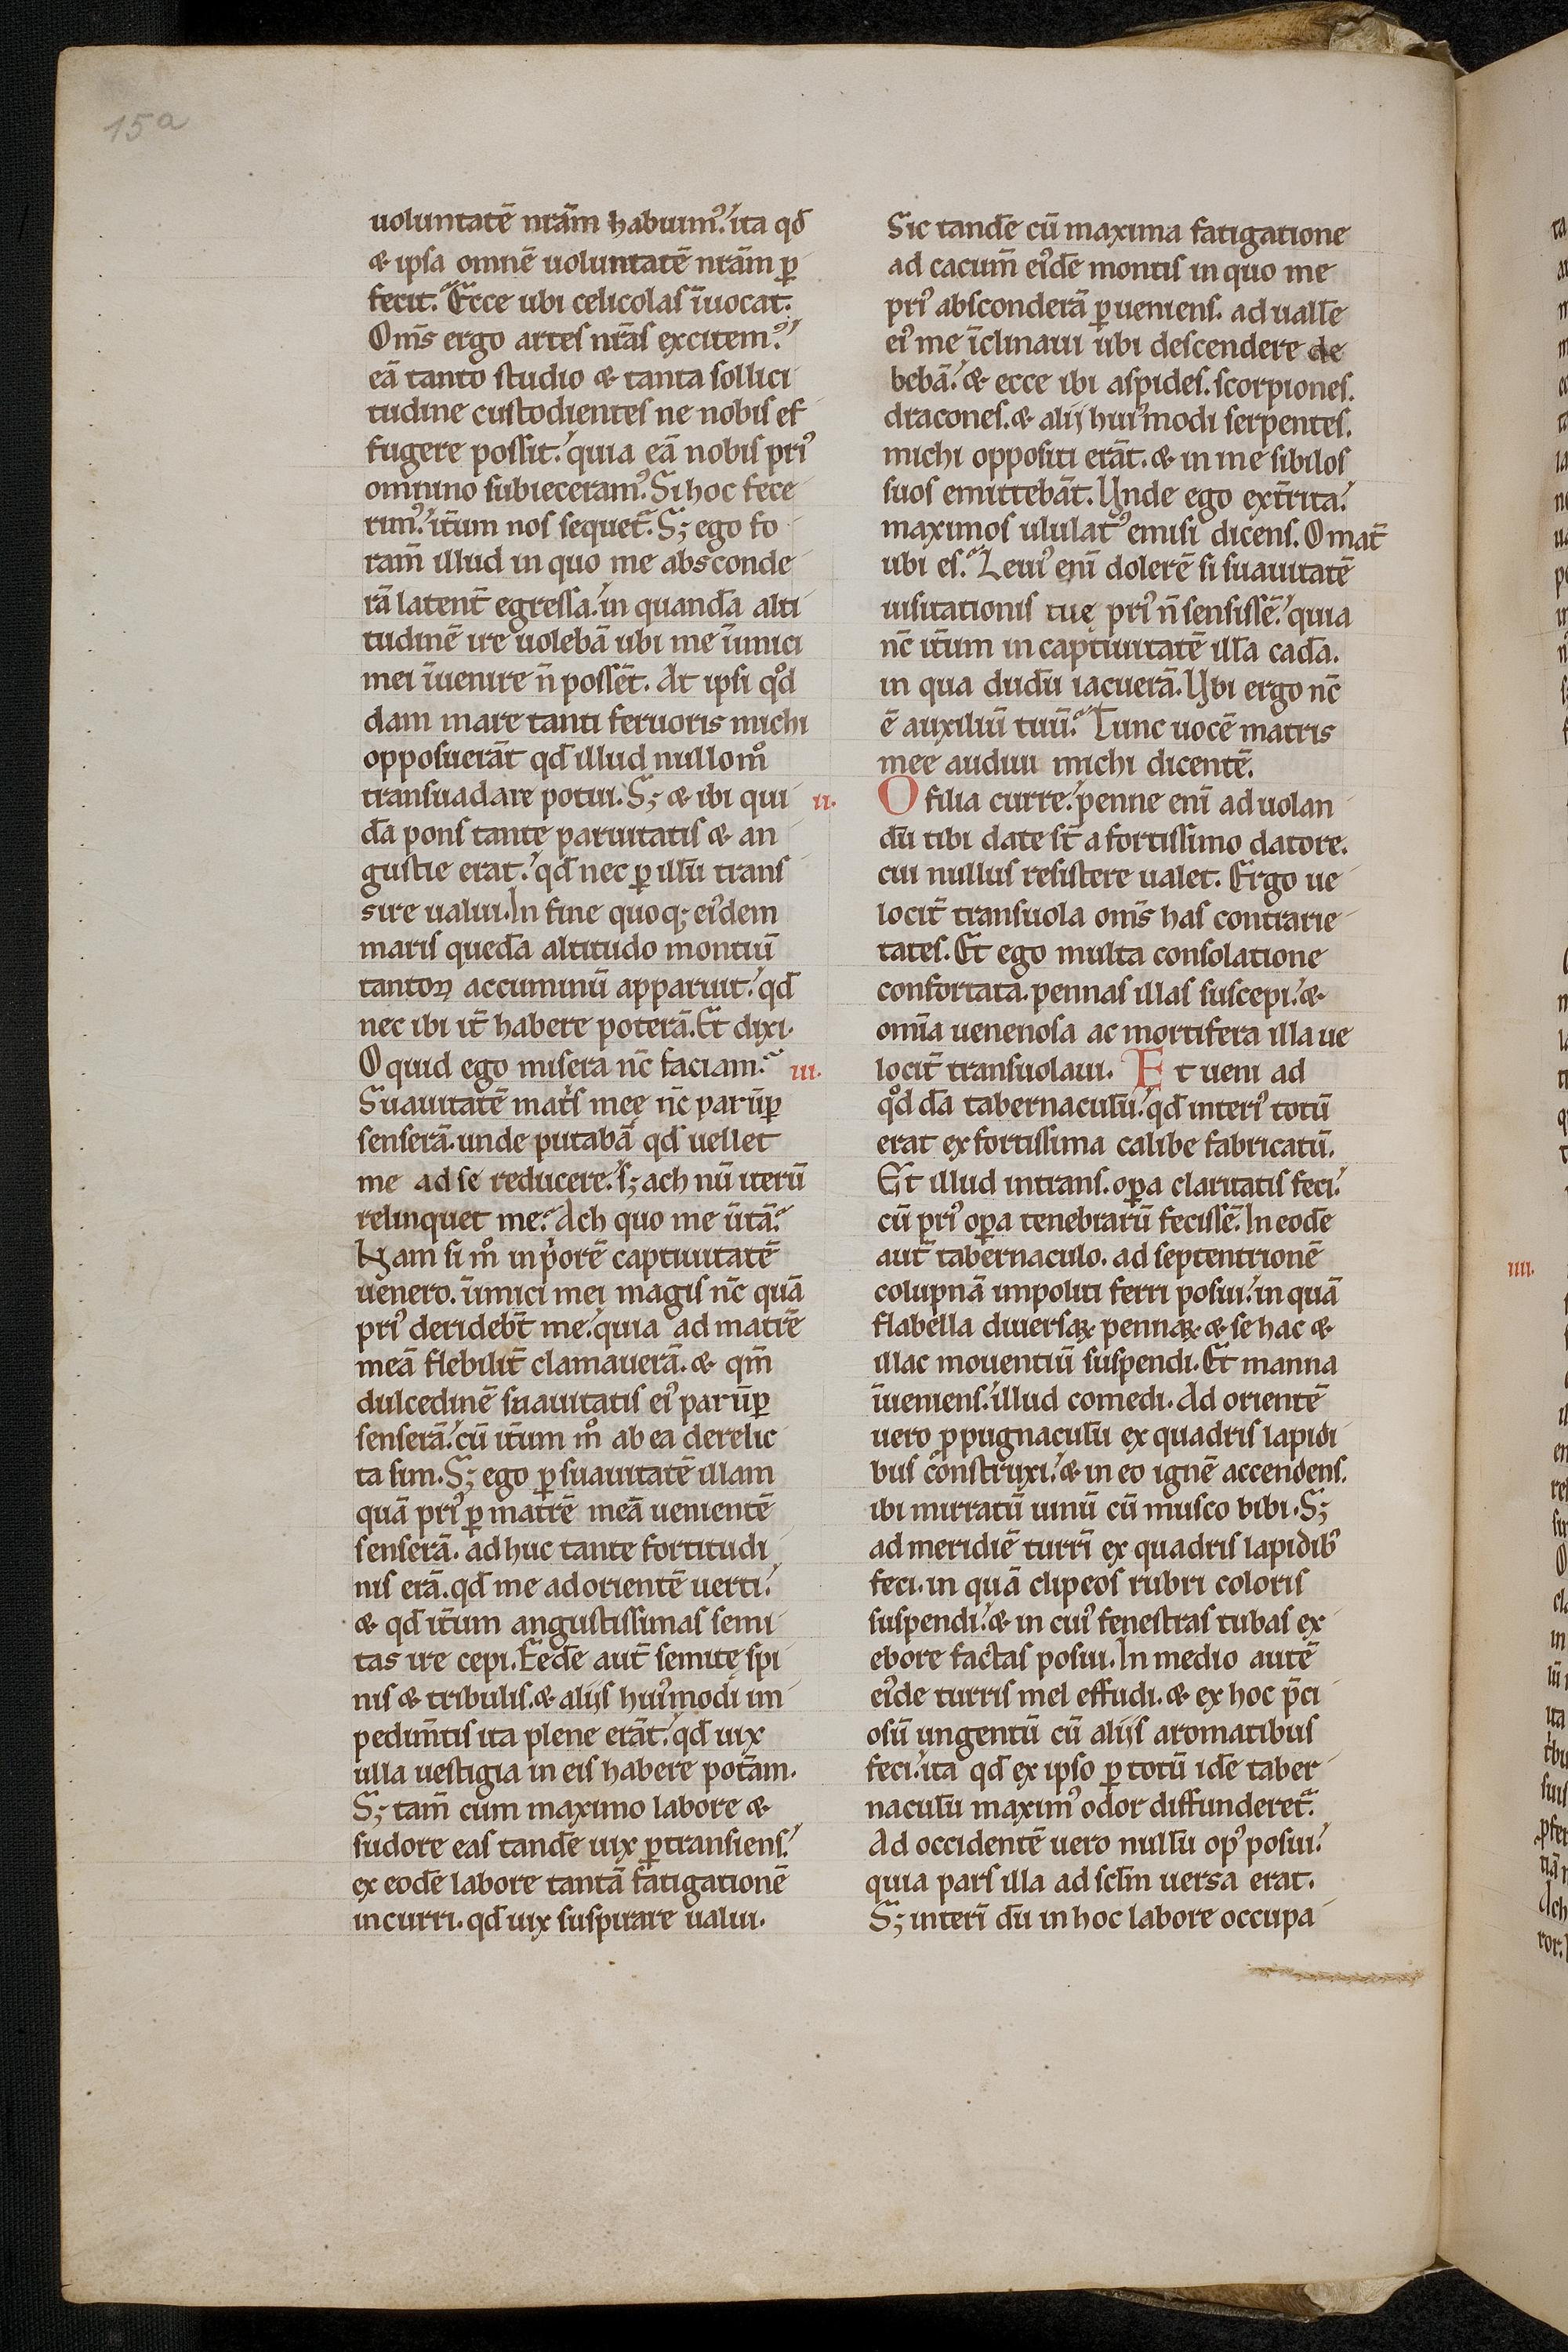 15a
uoluntatē nrām habuimꝰ. ita qd̄
& ipsa omnē uoluntatē nrām ꝑ
fecit. Ecce ubi celicolas īuocat.
Om̄s ergo artes nrās excitemꝰ
eā tanto studio & tanta sollici
tudine custodientes ne nobis ef
fugere possit. quia eā nobis priꝰ
omnino subieceramꝰ. Si hoc fece
rimꝰ. it̄um nos sequet̄. Sꝫ ego fo
ram̄ illud in quo me absconde
rā latent̄ egressa. in quandā alti
tudinē ire uolebā ubi me īimici
mei īuenire n̄ possēt. At ipsi qͦd
dam mare tanti feruoris michi
opposuerāt qd̄ illud nullom̊
transuadare potui. Sꝫ & ibi qui
dā pons tantę paruitatis & an
gustie erat. qd̄ nec ꝑ illū trans
sire ualui. In fine quoqꝫ eiꝰdem
maris quedā altitudo montiū
tantoꝝ accuminū apparuit. qd̄
nec ibi it̄ habere poterā. Et dixi.
O quid ego misera nc̄ faciam.
Suauitatē mat̄s meę nc̄ parūꝑ
senserā. unde putabā qd̄ uellet
me ad se reducere. sꝫ ach nū iterū
relinquet me. Ach quo me ūtā.
Nam si m̊ in p̄orē captiuitatē
uenero. īimici mei magis nc̄ quā
priꝰ deridebt̄ me. quia ad matrē
meā flebilit̄ clamauerā. & qm̄
dulcedinē suauitatis eiꝰ parūꝑ
senserā. cū it̄um m̊ ab ea derelic
ta sim. Sꝫ ego ꝑ suauitatē illam
quā priꝰ ꝑ matrē meā uenientē
senserā. adhuc tante fortitudi
nis erā. qd̄ me ad orientē uerti.
& qd̄ it̄um angustissimas semi
tas ire cepi. Eedē aut̄ semitę spi
nis & tribulis. & alijs huiꝰmodi im
pedim̄tis ita plene erāt. qd̄ uix
ulla uestigia in eis habere potām.
Sꝫ tam̄ cum maximo labore &
sudore eas tandē uix ꝑtransiens.
ex eodē labore tantā fatigationē
incurri. qd̄ uix suspirare ualui.
Sic tandē cū maxima fatigatione
ad cacum̄ eiꝰdē montis in quo me
priꝰ absconderā ꝑueniens. ad uallē
eiꝰ me īclinaui ubi descendere de
bebā. & ecce ibi aspides. scorpiones.
dracones. & alij huiꝰmodi serpentes.
michi oppositi erāt. & in me sibilos
suos emittebāt. Unde ego ext̄rita.
maximos ululatꝰ emisi dicens. O mat̄
ubi es. Leuiꝰ enī dolerē si suauitatē
uisitationis tuę priꝰ n̄ sensissē. quia
nc̄ it̄um in captiuitatē illā cadā.
in qua dudū iacuerā. Ubi ergo nc̄
ē auxiliū tuū. Tunc uocē matris
mee audiui michi dicentē.
II. O filia curre. penne enī ad uolan
dū tibi date st̄ a fortissimo datore.
cui nullus resistere ualet. Ergo ue
locit̄ transuola om̄s has contrarie
tates. Et ego multa consolatione
confortata. pennas illas suscepi. &
omīa uenenosa ac mortifera illa ue
III. locit̄ transuolaui. Et ueni ad
qͦddā tabernaculū. qd̄ interiꝰ totū
erat ex fortissima calibe fabricatū.
Et illud intrans. oꝑa claritatis feci.
cū priꝰ oꝑa tenebrarū fecissē. In eodē
aut̄ tabernaculo. ad septentrionē
colupnā impoliti ferri posui. in quā
flabella diuersaꝝ pennaꝝ & se hac &
illac mouentiū suspendi. Et manna
īueniens. illud comedi. Ad orientē
uero ꝓpugnaculū ex quadris lapidi
bus construxi. & in eo ignē accendens.
ibi mirratū uinū cū musco bibi. Sꝫ
ad meridiē turrī ex quadris lapidibꝰ
feci. in quā clipeos rubri coloris
suspendi. & in cuiꝰ fenestras tubas ex
ebore factas posui. In medio autē
eiꝰdē turris mel effudi. & ex hoc p̄ci
osū ungentū cū alijs aromatibus
feci. ita qd̄ ex ipso ꝑ totū idē taber
naculū maximꝰ odor diffunderet̄.
Ad occidentē uero nullū opꝰ posui.
quia pars illa ad sc̄lm uersa erat.
Sꝫ interī dū in hoc labore occupa
IIII.